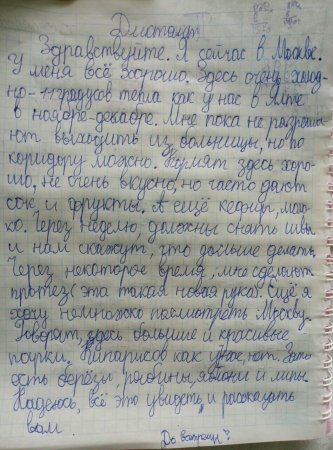 Диктант
Здравствуйте. Я сейчас в Москве.
У меня всё хорошо. Здесь очень холод-
но -11 градусов тепла как у нас в Ялте
в ноябре-декабре. Мне пока не разреша-
ют выходить из больницы, но по
коридору можно. Кормят здесь хоро-
шо, не очень вкусно, но часто дают
сок и фрукты. А ещё кефир, моло-
ко. Через неделю, должны снять швы
и нам скажут, что дальше делать.
Через некоторое время, мне сделают
протез (эта такая новая рука). Ещё я
хочу немножко посмотреть Москву.
Говорят, здесь большие и красивые
парки. Кипарисов как у нас, нет. Зато
есть берёзы, рябины, яблони и липы.
Надеюсь, всё это увидеть, и рассказать
вам.